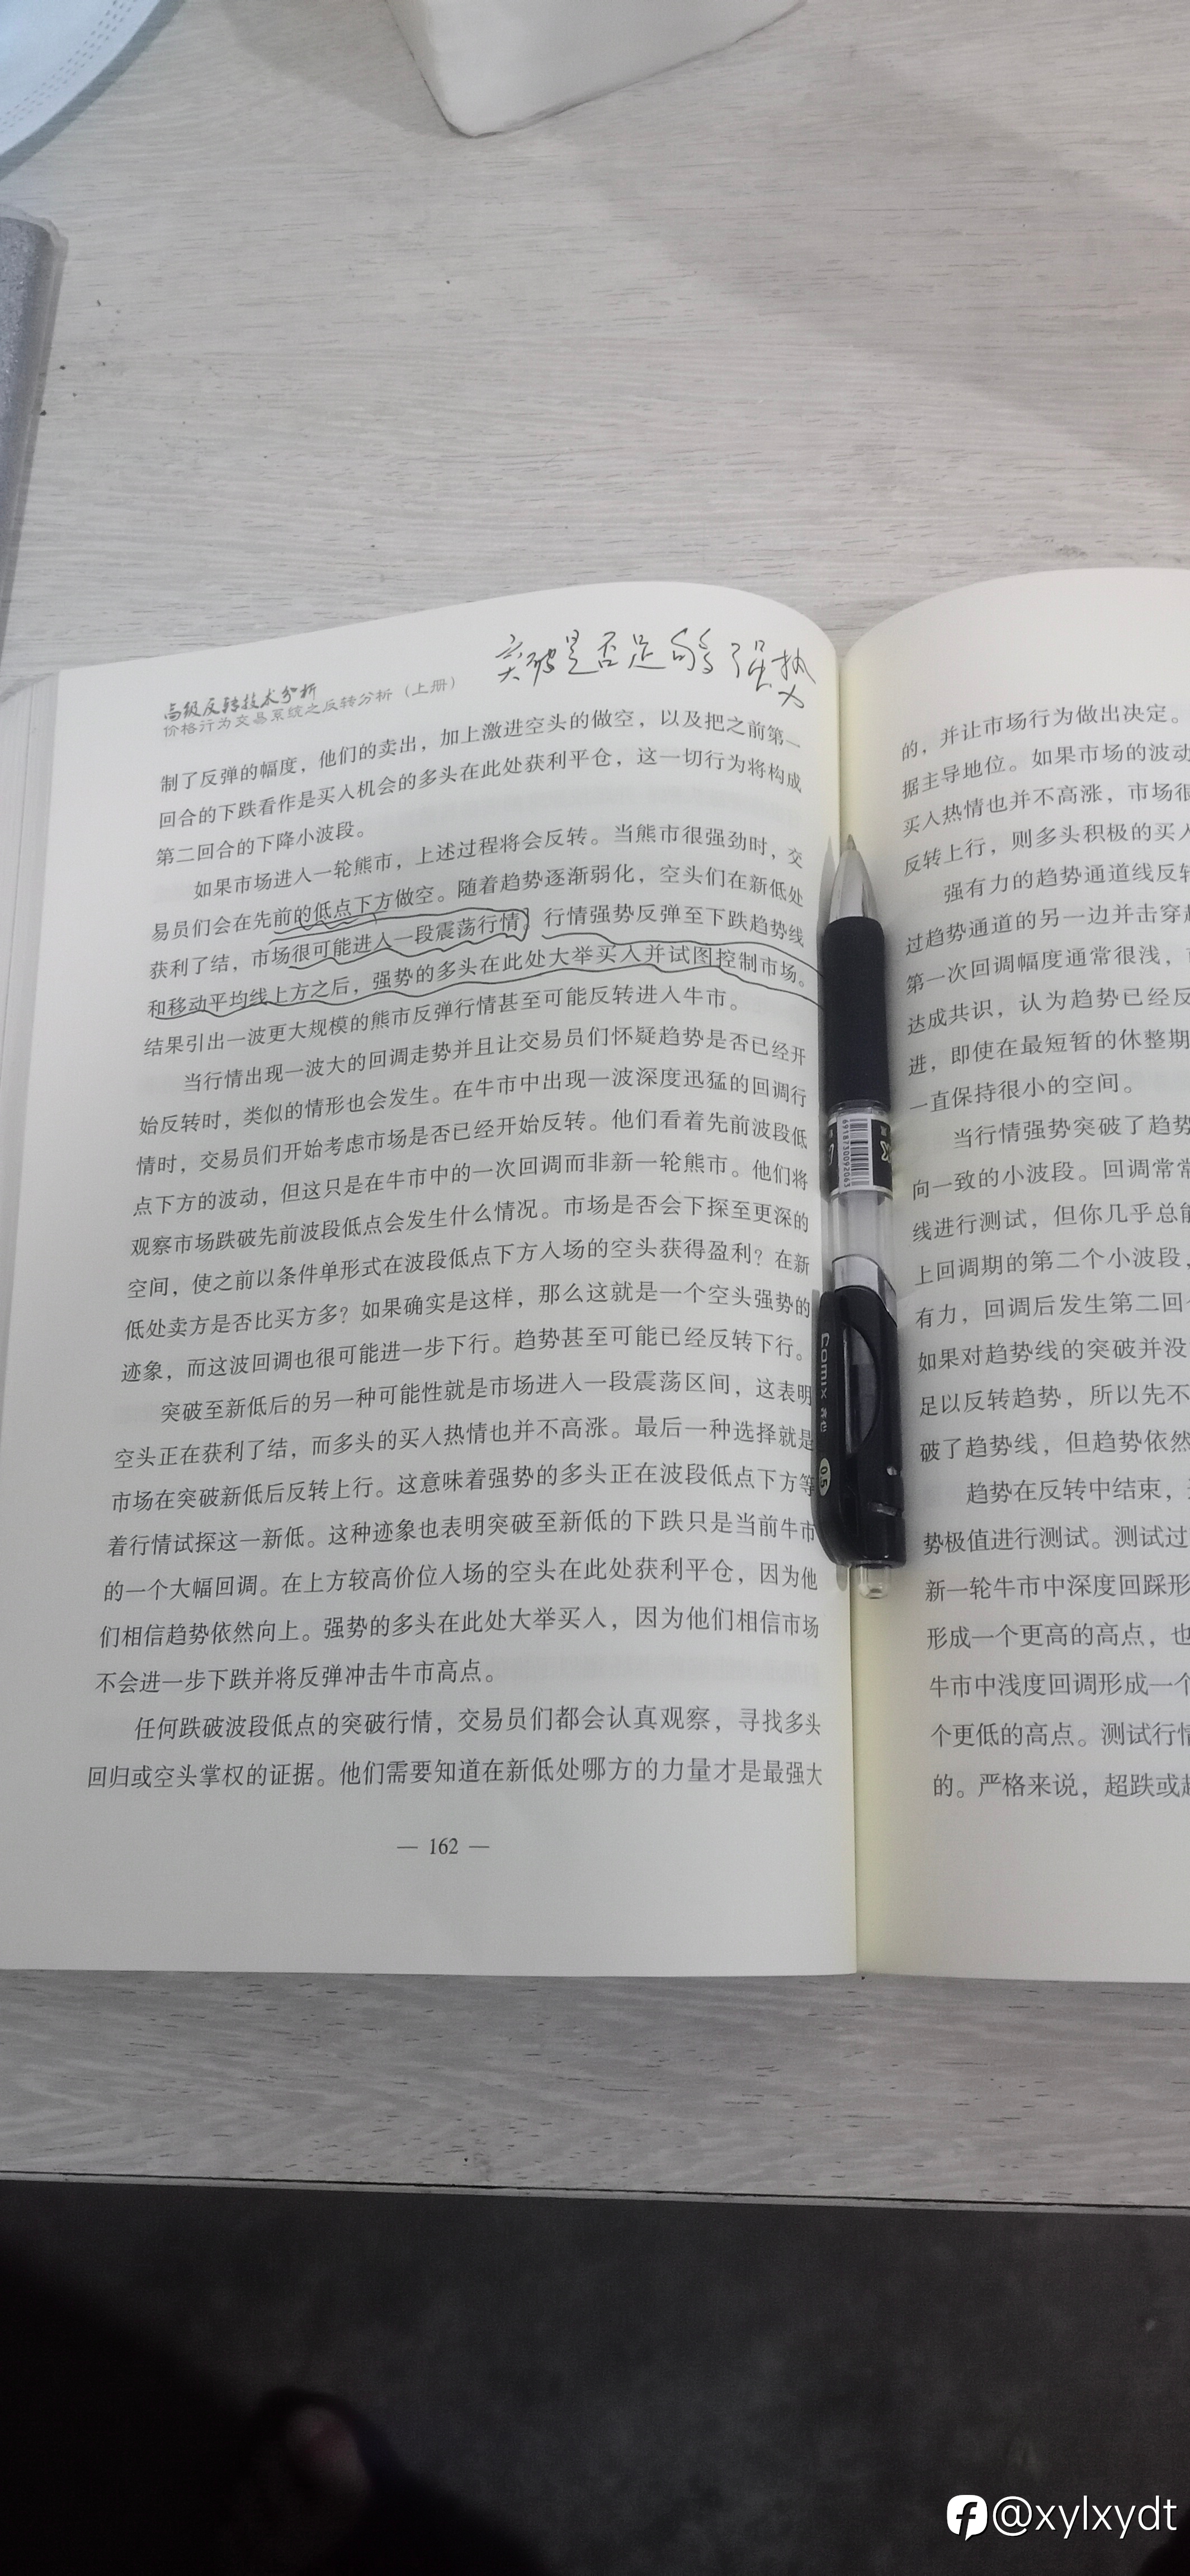 突破是否足够强势
高级反转技术分析
价格行为交易系统之反转分析（上册）
制了反弹的幅度，他们的卖出，加上激进空头的做空，以及把之前第一
回合的下跌看作是买入机会的多头在此处获利平仓，这一切行为将构成
第二回合的下降小波段。
如果市场进入一轮熊市，上述过程将会反转。当熊市很强劲时，交
易员们会在先前的低点下方做空。随着趋势逐渐弱化，空头们在新低处
获利了结，市场很可能进入一段震荡行情。行情强势反弹至下跌趋势线
和移动平均线上方之后，强势的多头在此处大举买入并试图控制市场。
结果引出一波更大规模的熊市反弹行情甚至可能反转进入牛市。
当行情出现一波大的回调走势并且让交易员们怀疑趋势是否已经开
始反转时，类似的情形也会发生。在牛市中出现一波深度迅猛的回调行
情时，交易员们开始考虑市场是否已经开始反转。他们看着先前波段低
点下方的波动，但这只是在牛市中的一次回调而非新一轮熊市。他们将
观察市场跌破先前波段低点会发生什么情况。市场是否会下探至更深的
空间，使之前以条件单形式在波段低点下方入场的空头获得盈利？在新
低处卖方是否比买方多？如果确实是这样，那么这就是一个空头强势的
迹象，而这波回调也很可能进一步下行。趋势甚至可能已经反转下行。
突破至新低后的另一种可能性就是市场进入一段震荡区间，这表明
空头正在获利了结，而多头的买入热情也并不高涨。最后一种选择就是
市场在突破新低后反转上行。这意味着强势的多头正在波段低点下方等
着行情试探这一新低。这种迹象也表明突破至新低的下跌只是当前牛市
的一个大幅回调。在上方较高价位入场的空头在此处获利平仓，因为他
们相信趋势依然向上。强势的多头在此处大举买入，因为他们相信市场
不会进一步下跌并将反弹冲击牛市高点。
任何跌破波段低点的突破行情，交易员们都会认真观察，寻找多头
回归或空头掌权的证据。他们需要知道在新低处哪方的力量才是最强大
— 162 —
的，并让市场行为做出决定。
据主导地位。如果市场的波动
买入热情也并不高涨，市场很
反转上行，则多头积极的买入
强有力的趋势通道线反转
过趋势通道的另一边并击穿
第一次回调幅度通常很浅，
达成共识，认为趋势已经反
进，即使在最短暂的休整期
一直保持很小的空间。
当行情强势突破了趋势
向一致的小波段。回调常常
线进行测试，但你几乎总能
上回调期的第二个小波段，
有力，回调后发生第二回
如果对趋势线的突破并没
足以反转趋势，所以先不
破了趋势线，但趋势依然
趋势在反转中结束，
势极值进行测试。测试过
新一轮牛市中深度回踩形
形成一个更高的高点，也
牛市中浅度回调形成一个
个更低的高点。测试行情
的。严格来说，超跌或
6918730092063
comix 齐心
05
@xylxydt